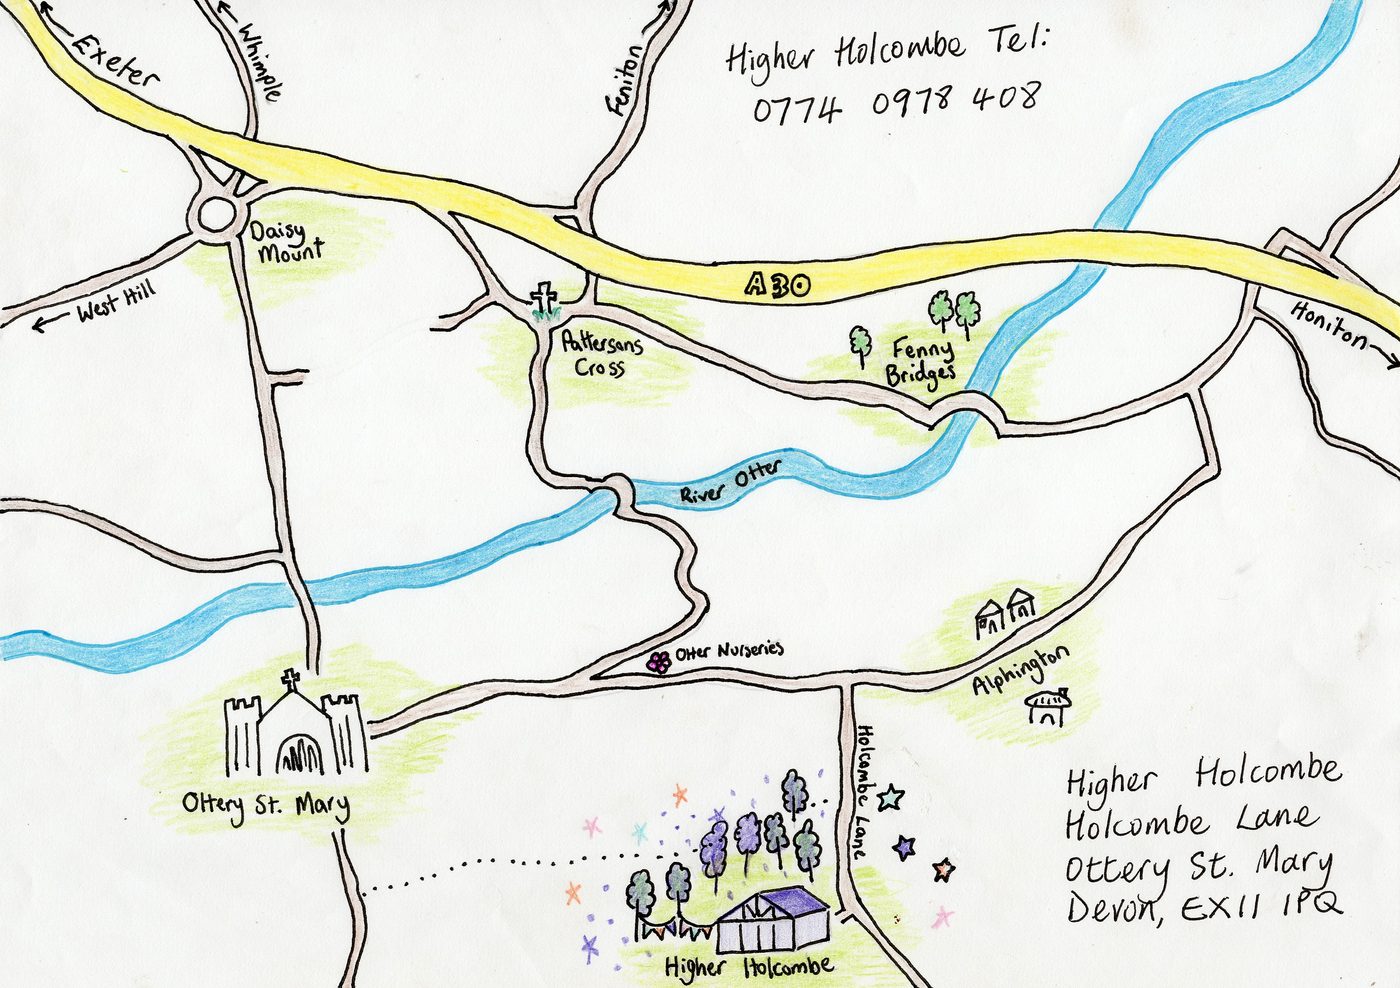 Exeter
Whimple
Feniton
Higher Holcombe Tel:
0774 0978 408
Daisy
Mount
West Hill
A30
Honiton
Pattersons
Cross
Fenny
Bridges
River Otter
Otter Nurseries
Alphington
Holcombe Lane
Ottery St. Mary
Higher Holcombe
Higher Holcombe
Holcombe Lane
Ottery St. Mary
Devon, EX11 1PQ